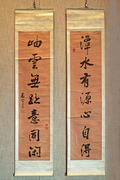 潭水有源心自得
岫雲無跡意同閑